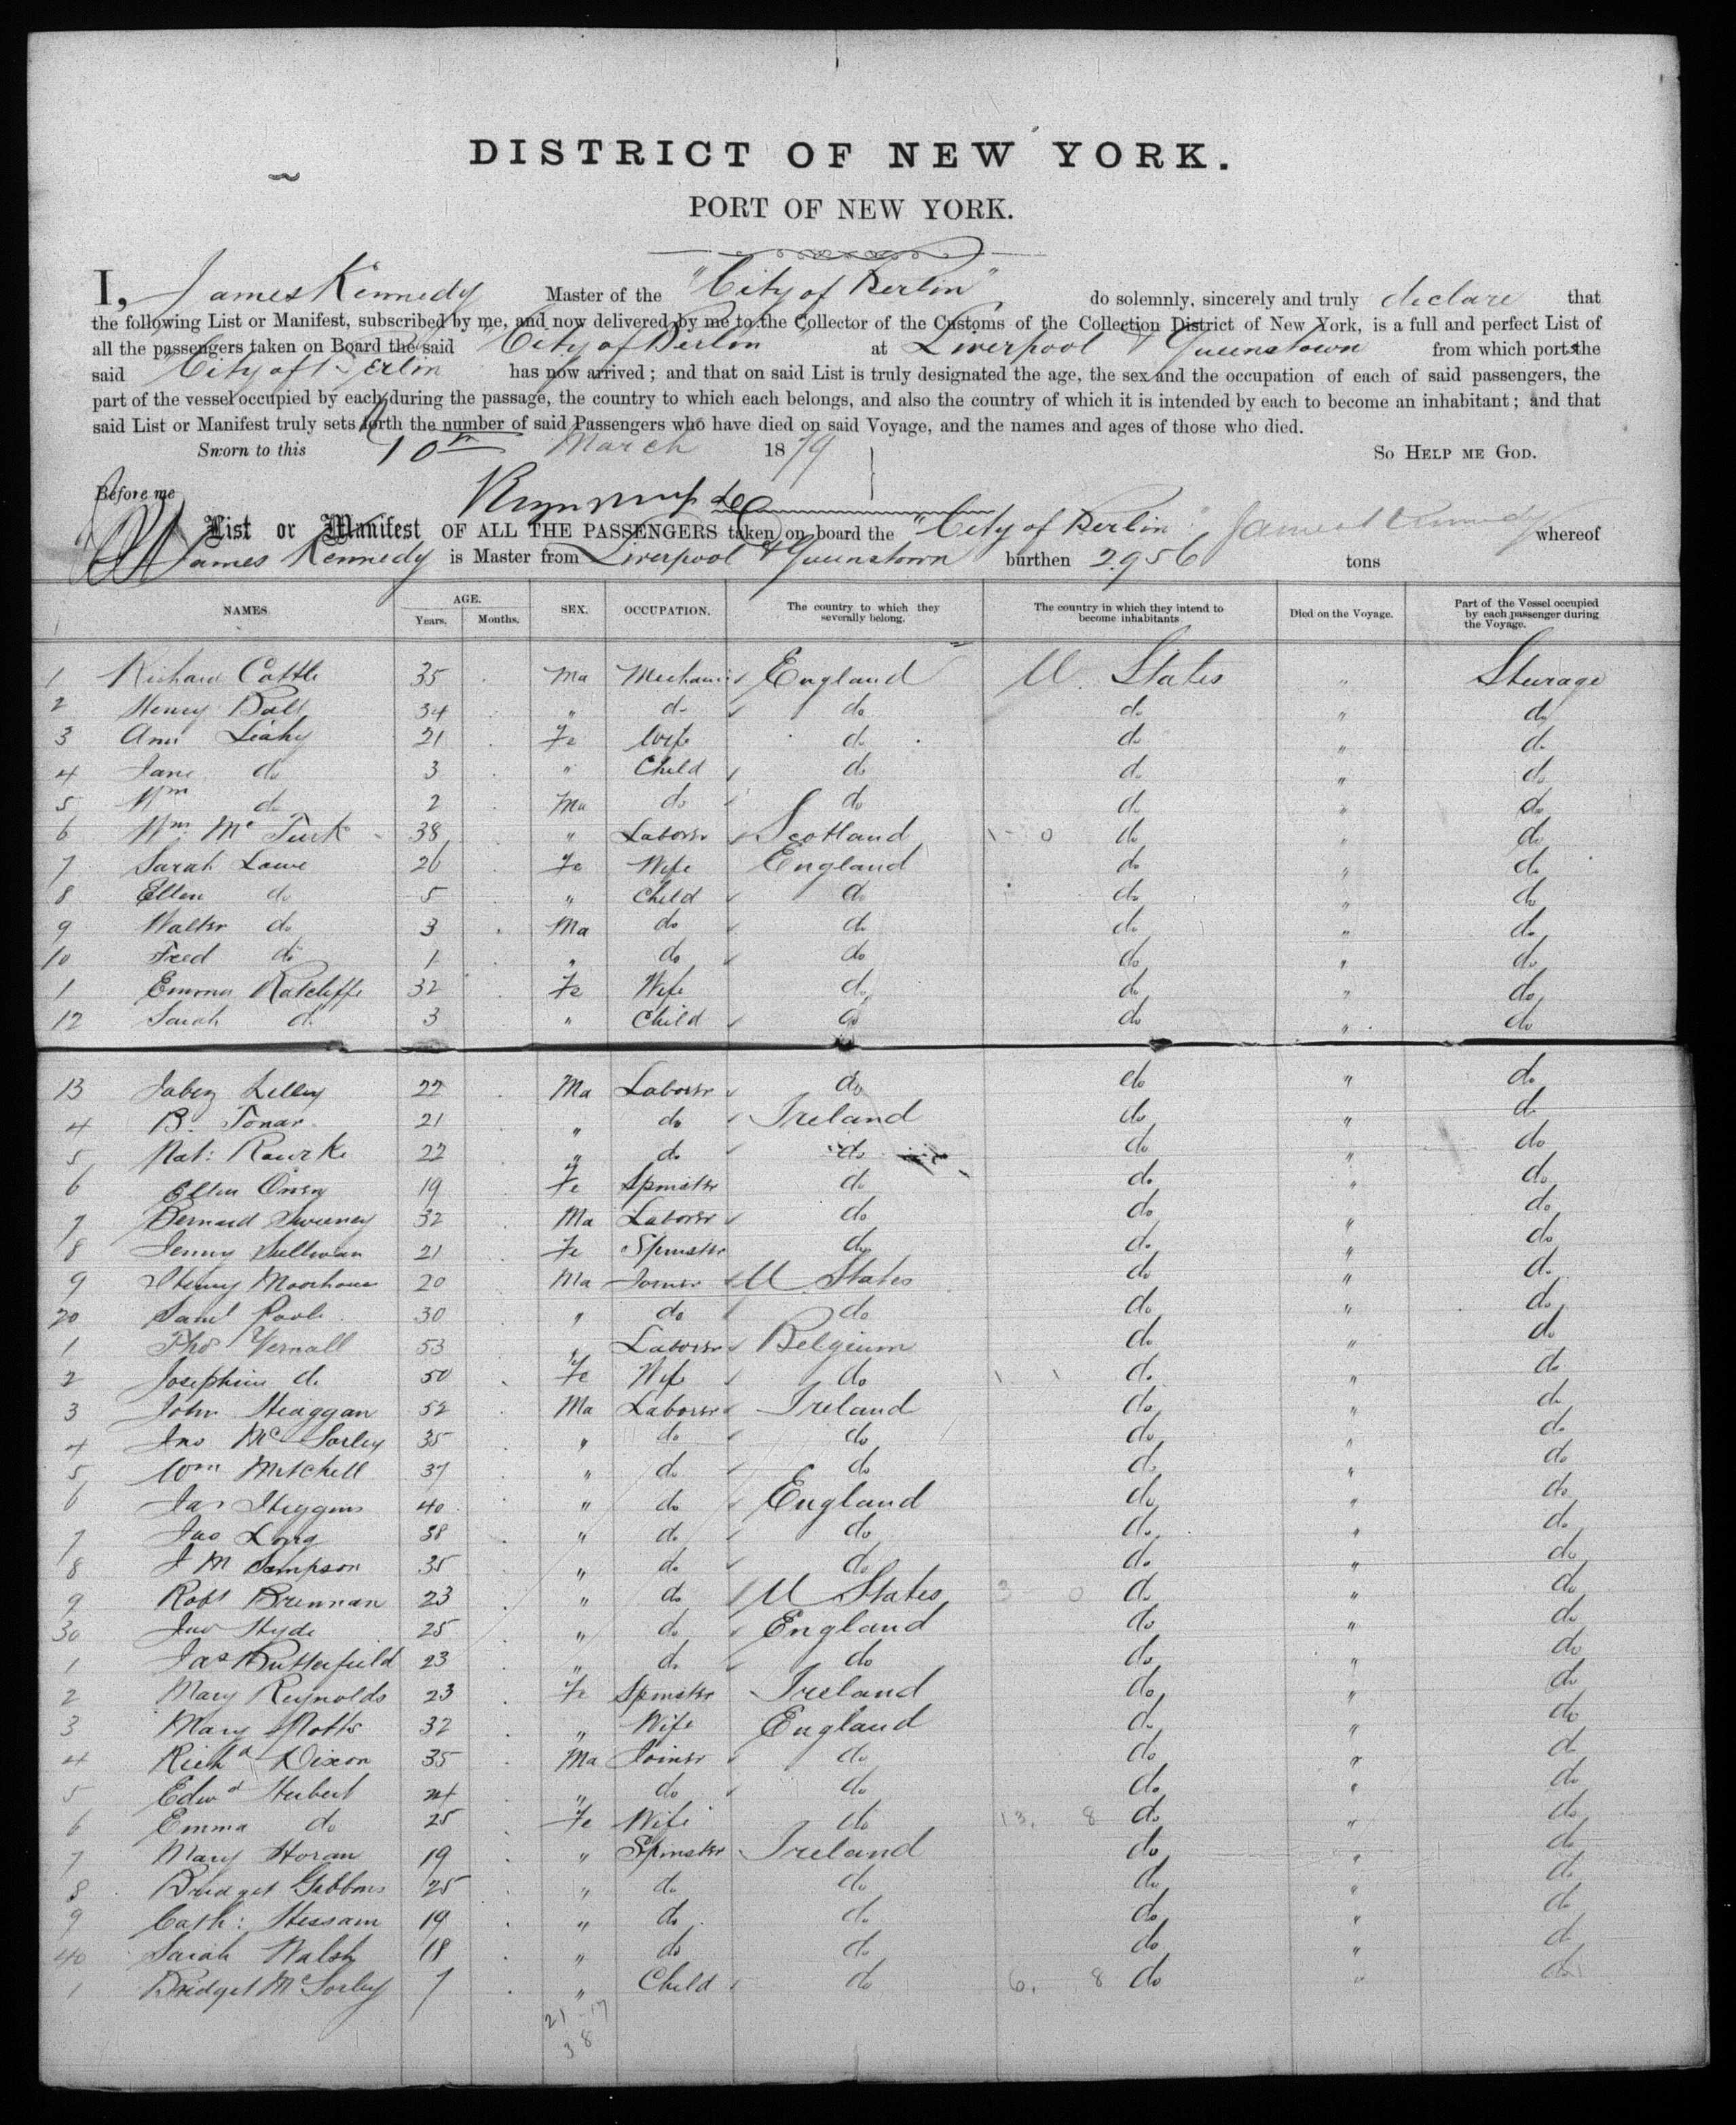 DISTRICT OF NEW YORK.
PORT OF NEW YORK.
I, James Kennedy Master of the "City of Berlin" do solemnly, sincerely and truly declare that
the following List or Manifest, subscribed by me, and now delivered by me to the Collector of the Customs of the Collection District of New York, is a full and perfect List of
all the passengers taken on Board the said City of Berlin at Liverpool & Queenstown from which ports the
said City of Berlin has now arrived; and that on said List is truly designated the age, the sex and the occupation of each of said passengers, the
part of the vessel occupied by each during the passage, the country to which each belongs, and also the country of which it is intended by each to become an inhabitant; and that
said List or Manifest truly sets forth the number of said Passengers who have died on said Voyage, and the names and ages of those who died.
Sworn to this 10th March 1879 So Help me God.
Before me
List or Manifest OF ALL THE PASSENGERS taken on board the "City of Berlin" James Kennedy whereof
James Kennedy is Master from Liverpool & Queenstown burthen 2956 tons
NAMES AGE. Years. Months. SEX. OCCUPATION. The country to which they severally belong. The country in which they intend to become inhabitants Died on the Voyage. Part of the Vessel occupied by each passenger during the Voyage.
1 Richard Cattle 35 Ma Mechanic England U. States " Steerage
2 Henry Ball 34 " do do do " do
3 Ann Leahy 21 Fe Wife do do " do
4 Jane do 3 " Child do do " do
5 Wm do 2 Ma do do do " do
6 Wm Mc Turk 38 " Laborer Scotland 1 - 0 do " do
7 Sarah Lowe 26 Fe Wife England do " do
8 Ellen do 5 " Child do do " do
9 Walter do 3 Ma do do do " do
10 Fred do 1 " do do do " do
1 Emma Ratcliffe 32 Fe Wife do do " do
12 Sarah do 3 " Child do do " do
13 Jabez Lilley 22 Ma Laborer do do " do
4 B. Tonar 21 " do Ireland do " do
5 Pat: Rourke 22 " do do do " do
6 Ellen 19 Fe Spinster do do " do
7 Bernard Sweeney 32 Ma Laborer do do " do
8 Jenny Sullivan 21 Fe Spinster do do " do
9 Henry Moorhouse 20 Ma Joiner U States do " do
20 Saml Poole 30 " do do do " do
1 Thos Vernall 53 " Laborer Belgium do " do
2 Josephine do 50 Fe Wife do 1 1 do " do
3 John Heaggan 52 Ma Laborer Ireland do " do
4 Jno Mc Sorley 35 " do do do " do
5 Wm Mitchell 37 " do do do " do
6 Jas Higgins 40 " do England do " do
7 Jno Long 38 " do do do " do
8 J M Sampson 35 " do do do " do
9 Robt Brennan 23 " do U States 3 0 do " do
30 Jno Hyde 25 " do England do " do
1 Jas Butterfield 23 " do do do " do
2 Mary Reynolds 23 Fe Spinster Ireland do " do
3 Mary Notts 32 " Wife England do " do
4 Richd Dixon 35 Ma Joiner do do " do
5 Edwd Herbert 24 " do do do " do
6 Emma do 25 Fe Wife do 13, 8 do " do
7 Mary Horan 19 " Spinster Ireland do " do
8 Bridget Gibbons 25 " do do do " do
9 Cath: Hessam 19 " do do do " do
40 Sarah Walsh 18 " do do do " do
1 Bridget McSorley 7 " Child do 6, 8 do " do
21 - 17
38